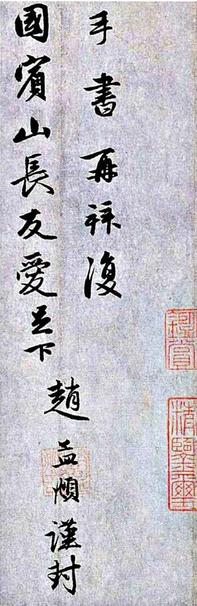 手書再拜復
國賓山長友愛足下
趙孟頫謹封